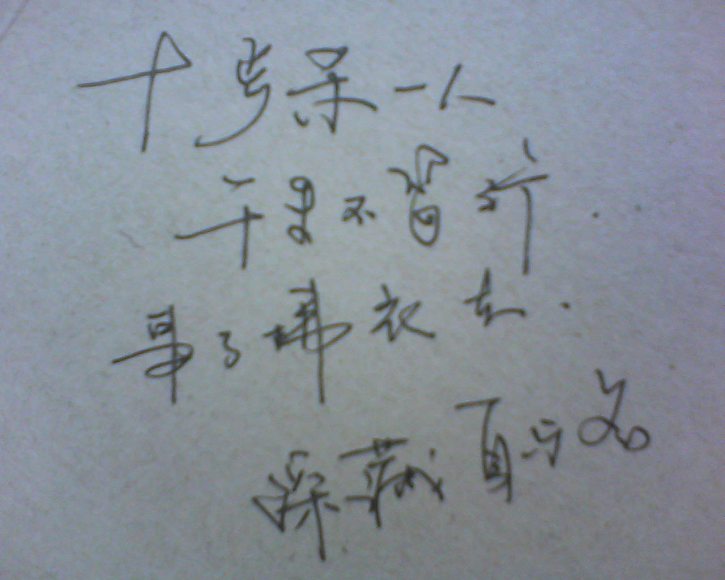 十步杀一人
千里不留行.
事了拂衣去.
深藏身与名